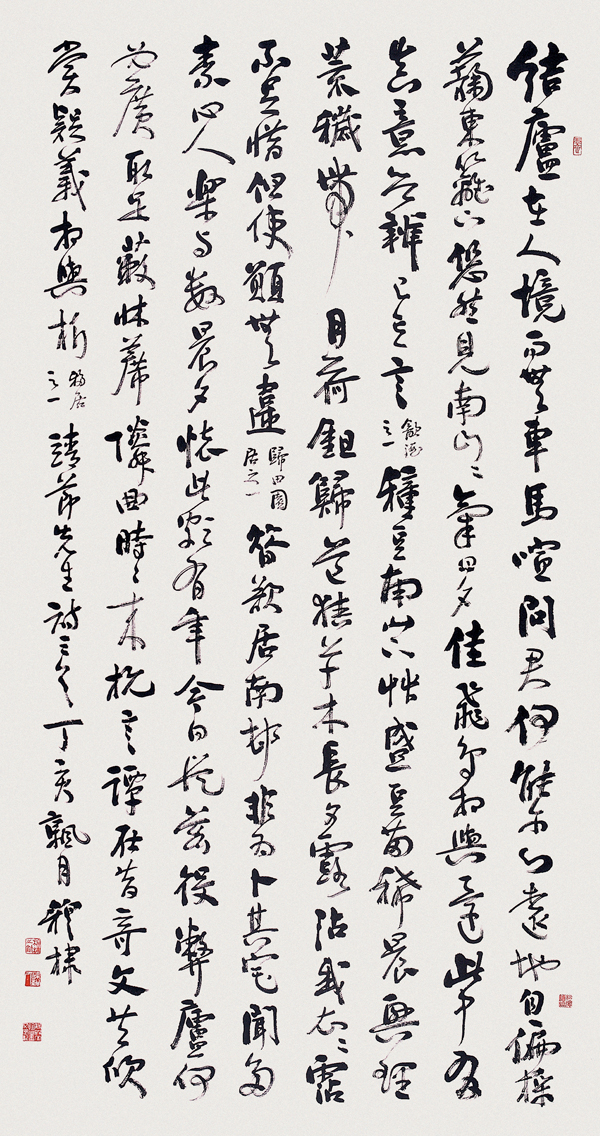 結廬在人境而無車馬喧問君何能尔心遠地自偏採
菊東籬下悠然見南山〻氣日夕佳飛鳥相與還此中有
真意欲辨已忘言 飲酒之一 種豆南山下草盛豆苗稀晨興理
荒穢帶月荷鉏歸道狹草木長夕露沾我衣〻霑
不足惜但使願無違 歸田園居之一 昔欲居南邨非為卜其宅聞多
素心人樂與數晨夕懷此頗有年今日從茲役弊廬何
必廣取足蔽牀蓆隣曲時〻來抗言譚在昔奇文共欣
賞疑義相與析 移居之一 靖節先生詩三首 丁亥飄月 穆棣